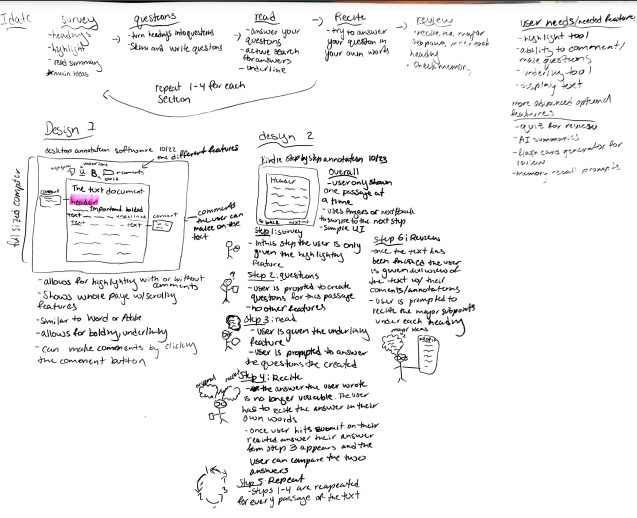 survey
-headings
-highlight
-read summary
main ideas
questions
-turn headings into questions
-Skim and write questons
read
-answer your
questions
-active search
for answers
-underline
Recite
-try to answer
your question in
your own words
review
-recite the major
heading
repeat 1-4 for each
section
user needs/needed features
-highlight tool
-ability to comment/
make questions
-underling tool
-display text
more advanced optional
features
-quiz for review
-AI summaries
-flash card generator for
review
-memory recall prompts
Design 1
desktop annotation software 10/22
different features
underline
B
comments
bold
The text document
header
Important bolded
text
underlined
text
text
comment
comment
comments
the user can
make on the
text
full sized computer
-allows for highlighting with or without
comments
-Shows whole page w/scrolling
features
-similar to Word or Adobe
-allows for bolding, underlining
-can make comments by clicking
the comment button
design 2
Kindle step by step annotation 10/23
Header
back
next
Overall
-user only shown
one passage at
a time
-uses fingers or next/back
to swipe to the next step
-simple UI
Step 1: survey
-In this step the user is only
given the highlighting
feature
Step 2: questions
-user is prompted to create
questions for this passage
-no other features
Step 3: read
-user is given the underling
feature
-user is prompted to answer
the questions the created
Step 4: Recite
-the answer the user wrote
is no longer viewable. The user
has to recite the answer in their
own words
-once user hits submit on their
recited answer their answer
form step 3 appears and the
user can compare the two
answers
Step 5: Repeat
-Steps 1-4 are reapeated
for every passage of the text
1
2
3
Step 6: Review
-once the text has
been finished the user
is given full view of
the text w/ their
comments/annotations
-user is prompted to
recite the major subpoints
under each heading
major items